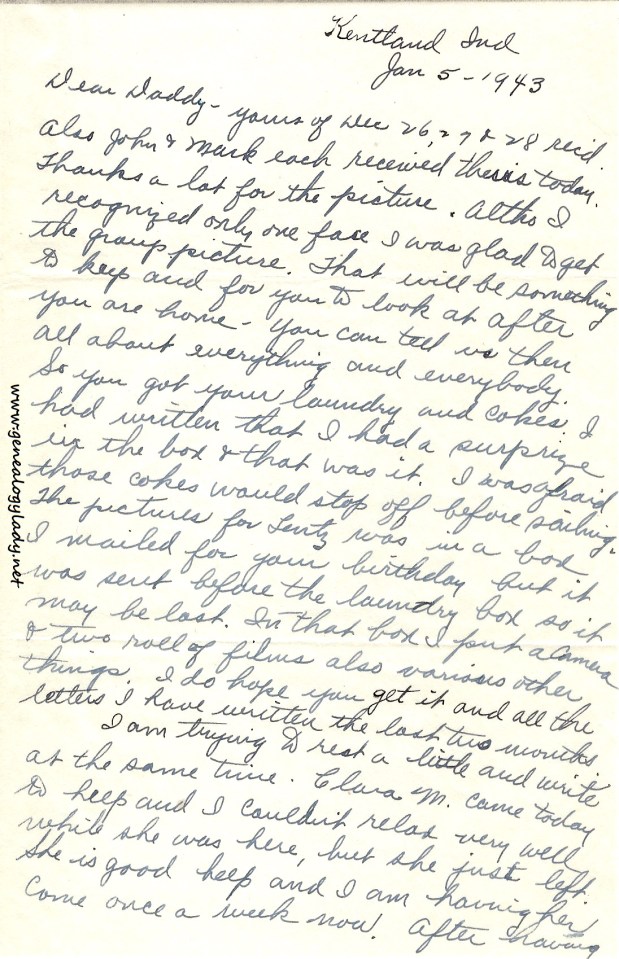 Kentland Ind
Jan 5 - 1943
Dear Daddy - yours of Dec 26, 27 & 28 rec'd.
Also John & Mark each received theirs today.
Thanks a lot for the picture. Altho I
recognized only one face I was glad to get
the group picture. That will be something
to keep and for you to look at after
you are home - You can tell us then
all about everything and everybody.
So you got your laundry and cokes. I
had written that I had a surprize
in the box & that was it. I was afraid
those cokes would stop off before sailing.
The pictures for Lentz was in a box
I mailed for your birthday but it
was sent before the laundry box so it
may be lost. In that box I put a camera
& two roll of films also various other
things. I do hope you get it and all the
letters I have written the last two months.
I am trying to rest a little and write
at the same time. Clara M. came today
to help and I couldn't relax very well
while she was here, but she just left.
She is good help and I am having her
come once a week now. After having
www.genealogylady.net